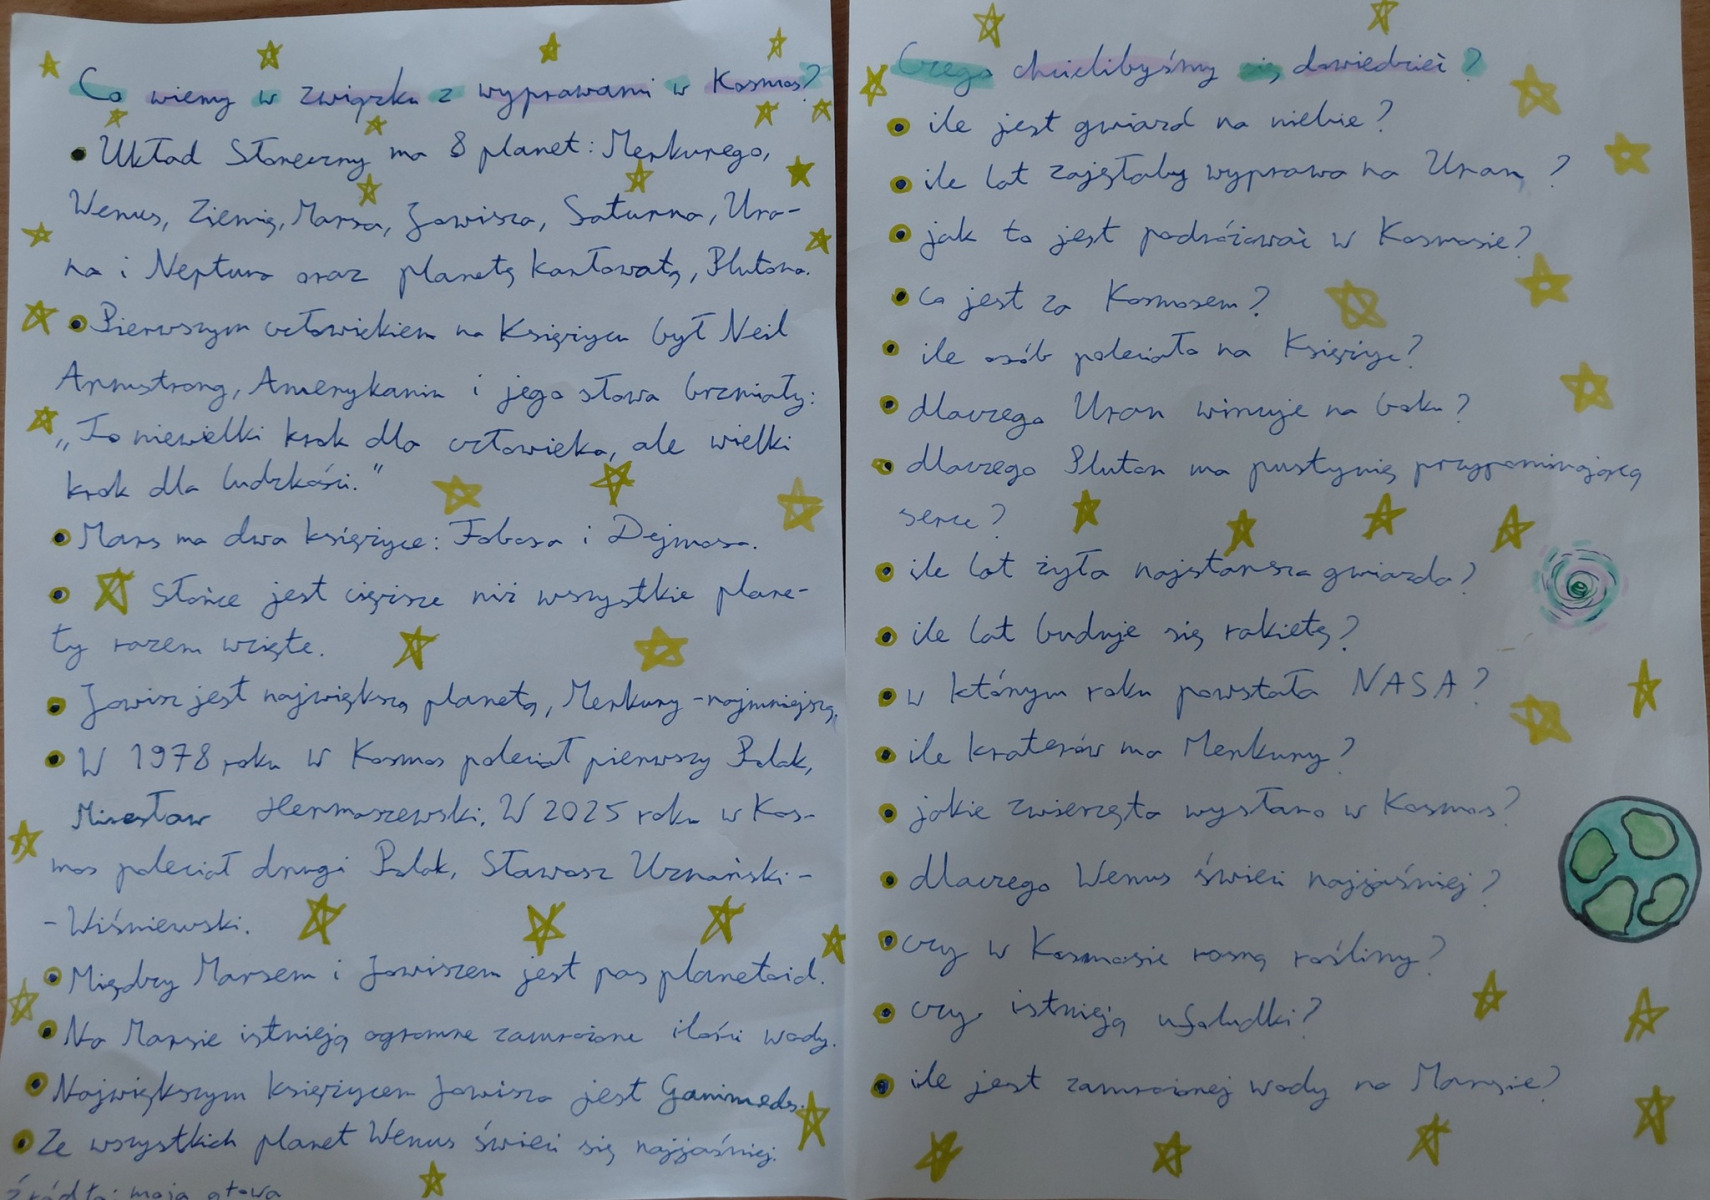 Co wiemy w związku z wyprawami w Kosmos?
• Układ Słoneczny ma 8 planet: Merkurego,
Wenus, Ziemię, Marsa, Jowisza, Saturna, Ura-
na i Neptuna oraz planetę karłowatą, Plutona.
• Pierwszym człowiekiem na Księżycu był Neil
Armstrong, Amerykanin i jego słowa brzmiały:
„To niewielki krok dla człowieka, ale wielki
krok dla ludzkości.”
• Mars ma dwa księżyce: Fobosa i Dejmosa.
• Słońce jest cięższe niż wszystkie plane-
ty razem wzięte.
• Jowisz jest największą planetą, Merkury - najmniejszą.
• W 1978 roku w Kosmos poleciał pierwszy Polak,
Mirosław Hermaszewski. W 2025 roku w Kos-
mos poleciał drugi Polak, Sławosz Uznański-
-Wiśniewski.
• Między Marsem i Jowiszem jest pas planetoid.
• Na Marsie istnieją ogromne zamrożone ilości wody.
• Największym księżycem Jowisza jest Ganimedes.
• Ze wszystkich planet Wenus świeci się najjaśniej.
Źródło: moja głowa
Czego chcielibyśmy się dowiedzieć?
• ile jest gwiazd na niebie?
• ile lat zajęłaby wyprawa na Uran?
• jak to jest podróżować w Kosmosie?
• co jest za Kosmosem?
• ile osób poleciało na Księżyc?
• dlaczego Uran wiruje na boku?
• dlaczego Pluton ma pustynię przypominającą
serce?
• ile lat żyła najstarsza gwiazda?
• ile lat buduje się rakietę?
• w którym roku powstała NASA?
• ile kraterów ma Merkury?
• jakie zwierzęta wysłano w Kosmos?
• dlaczego Wenus świeci najjaśniej?
• czy w Kosmosie rosną rośliny?
• czy istnieją ufoludki?
• ile jest zamrożonej wody na Marsie?